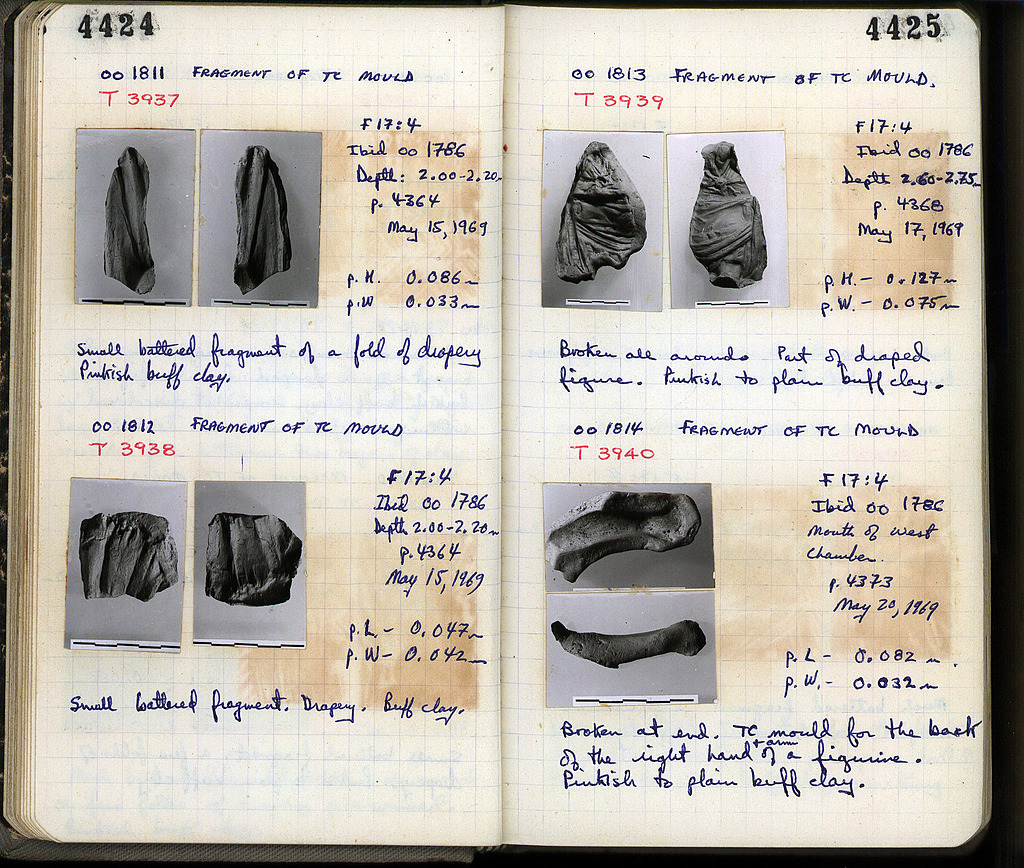 4424
oo 1811 FRAGMENT OF TC MOULD
T 3937
F 17:4
Ibid oo 1786
Depth: 2.00-2.20m
p. 4364
May 15, 1969
p. H. 0.086m
p.W 0.033m
Small battered fragment of a fold of drapery
Pinkish buff clay.
oo 1812 FRAGMENT OF TC MOULD
T 3938
F 17:4
Ibid oo 1786
Depth 2.00-2.20m
p. 4364
May 15, 1969
p. L. - 0.047m
p. W - 0.042m
Small battered fragment. Drapery. Buff clay.
4425
oo 1813 FRAGMENT OF TC MOULD.
T 3939
F 17:4
Ibid oo 1786
Depth 2.60-2.75m
p. 4368
May 17, 1969
p. H. - 0.127m
p. W. - 0.075m
Broken all around. Part of draped
figure. Pinkish to plain buff clay.
oo 1814 FRAGMENT OF TC MOULD
T 3940
F 17:4
Ibid oo 1786
Mouth of West
Chamber.
p. 4373
May 20, 1969
p. L - 0.082 m.
p. W. - 0.032m
Broken at end. TC mould for the back
of the right hand + arm of a figurine.
Pinkish to plain buff clay.